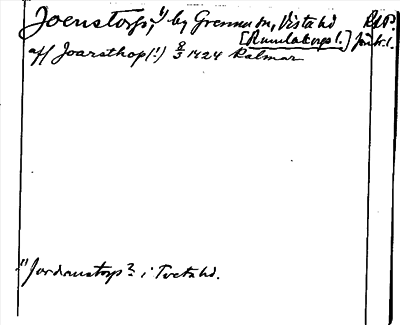 Joenstorp, 1) by Grenna sn, Vista hd
[Rumlaborgs l.] Jönk. l.
af Joarsthop(!) 8/3 1424 Kalmar
1) Jordanstorp? i Tveta hd.